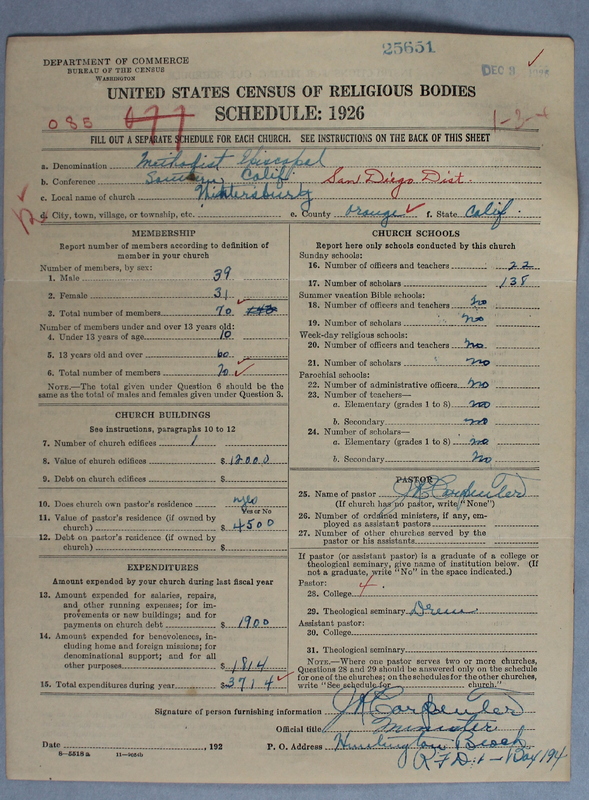 25651
DEPARTMENT OF COMMERCE
BUREAU OF THE CENSUS
WASHINGTON
DEC 3
UNITED STATES CENSUS OF RELIGIOUS BODIES
SCHEDULE: 1926
085 677 1-2-
FILL OUT A SEPARATE SCHEDULE FOR EACH CHURCH. SEE INSTRUCTIONS ON THE BACK OF THIS SHEET
a. Denomination Methodist Episcopal
b. Conference Southern Calif. San Diego Dist.
c. Local name of church Wintersburg
d. City, town, village, or township, etc. e. County Orange f. State Calif.
MEMBERSHIP
Report number of members according to definition of
member in your church
Number of members, by sex:
1. Male 39
2. Female 31
3. Total number of members 70
Number of members under and over 13 years old:
4. Under 13 years of age 10
5. 13 years old and over 60
6. Total number of members 70
NOTE.—The total given under Question 6 should be
same as the total of males and females given under Question 3.
CHURCH BUILDINGS
See instructions, paragraphs 10 to 12
7. Number of church edifices 1
8. Value of church edifices $ 12000
9. Debt on church edifices $
10. Does church own pastor's residence yes
Yes or No
11. Value of pastor's residence (if owned by
church) $ 4500
12. Debt on pastor's residence (if owned by
church) $
EXPENDITURES
Amount expended by your church during last fiscal year
13. Amount expended for salaries, repairs,
and other running expenses; for im-
provements or new buildings; and for
payments on church debt $ 1900
14. Amount expended for benevolences, in-
cluding home and foreign missions; for
denominational support; and for all
other purposes $ 1814
15. Total expenditures during year $ 3714
CHURCH SCHOOLS
Report here only schools conducted by this church
Sunday schools:
16. Number of officers and teachers 22
17. Number of scholars 138
Summer vacation Bible schools:
18. Number of officers and teachers no
19. Number of scholars no
Week-day religious schools:
20. Number of officers and teachers no.
21. Number of scholars no
Parochial schools:
22. Number of administrative officers no
23. Number of teachers—
a. Elementary (grades 1 to 8) no
b. Secondary no
24. Number of scholars—
a. Elementary (grades 1 to 8) no
b. Secondary no
PASTOR
25. Name of pastor Carpenter
(If church has no pastor, write "None")
26. Number of ordained ministers, if any, em-
ployed as assistant pastors
27. Number of other churches served by the
pastor or his assistants
If pastor (or assistant pastor) is a graduate of a college or
theological seminary, give name of institution below. (If
not a graduate, write "No" in the space indicated.)
Pastor:
28. College
29. Theological seminary Drew
Assistant pastor:
30. College
31. Theological seminary
NOTE.—Where one pastor serves two or more churches,
Questions 28 and 29 should be answered only on the schedule
for one of the churches; on the schedules for the other churches,
write "See schedule for church."
Signature of person furnishing information Carpenter
Official title Minister
Date , 192 P. O. Address Huntington Beach
8—5518a 11—9054b R F D 1 - Box 194